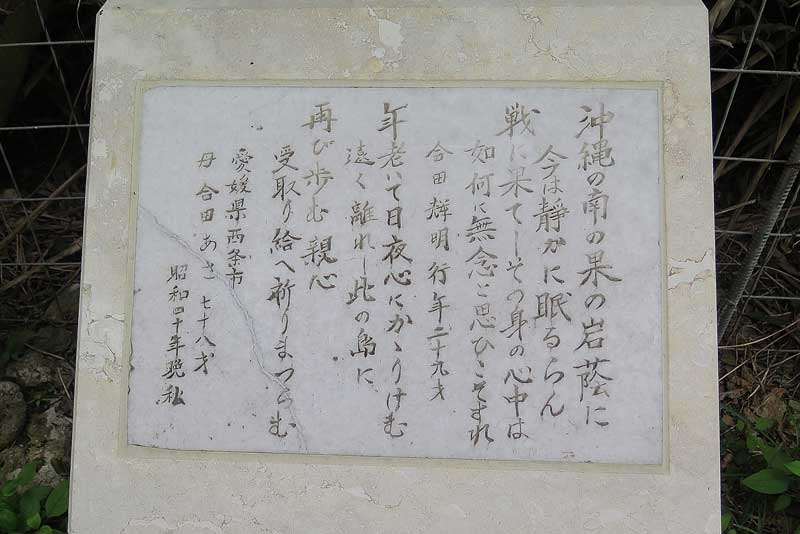 沖縄の南の果の岩蔭に
今は静かに眠るらん
戦に果てしその身の心中は
如何に無念と思ひこそすれ
合田輝明行年二十九才
年老いて日夜心にかゝりけむ
遠く離れし此の島に
再び歩む親心
受取り給へ祈りまつらむ
愛媛県西条市
母合田あさ七十八才
昭和四十年晩秋